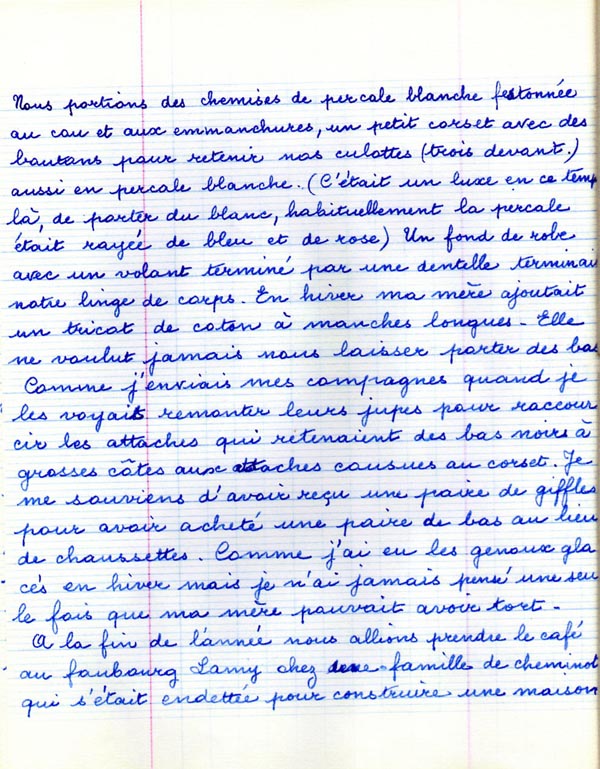 Nous portions des chemises de percale blanche festonnée
au cou et aux emmanchures, un petit corset avec des
boutons pour retenir nos culottes (trois devant.)
aussi en percale blanche. (C'était un luxe en ce temp
là, de porter du blanc, habituellement la percale
était rayée de bleu et de rose) Un fond de robe
avec un volant terminé par une dentelle terminai
notre linge de corps. En hiver ma mère ajoutait
un tricot de coton à manches longues - Elle
ne voulut jamais nous laisser porter des bas
Comme j'enviais mes compagnes quand je
les voyais remonter leurs jupes pour raccour
cir les attaches qui retenaient des bas noirs à
grosses côtes aux attaches cousues au corset. Je
me souviens d'avoir reçu une paire de giffles
pour avoir acheté une paire de bas au lieu
de chaussettes. Comme j'ai eu les genoux gla
cés en hiver mais je n'ai jamais pensé une seu
le fois que ma mère pouvait avoir tort -
A la fin de l'année nous allions prendre le café
au faubourg Lamy chez une famille de cheminot
qui s'était endettée pour construire une maison